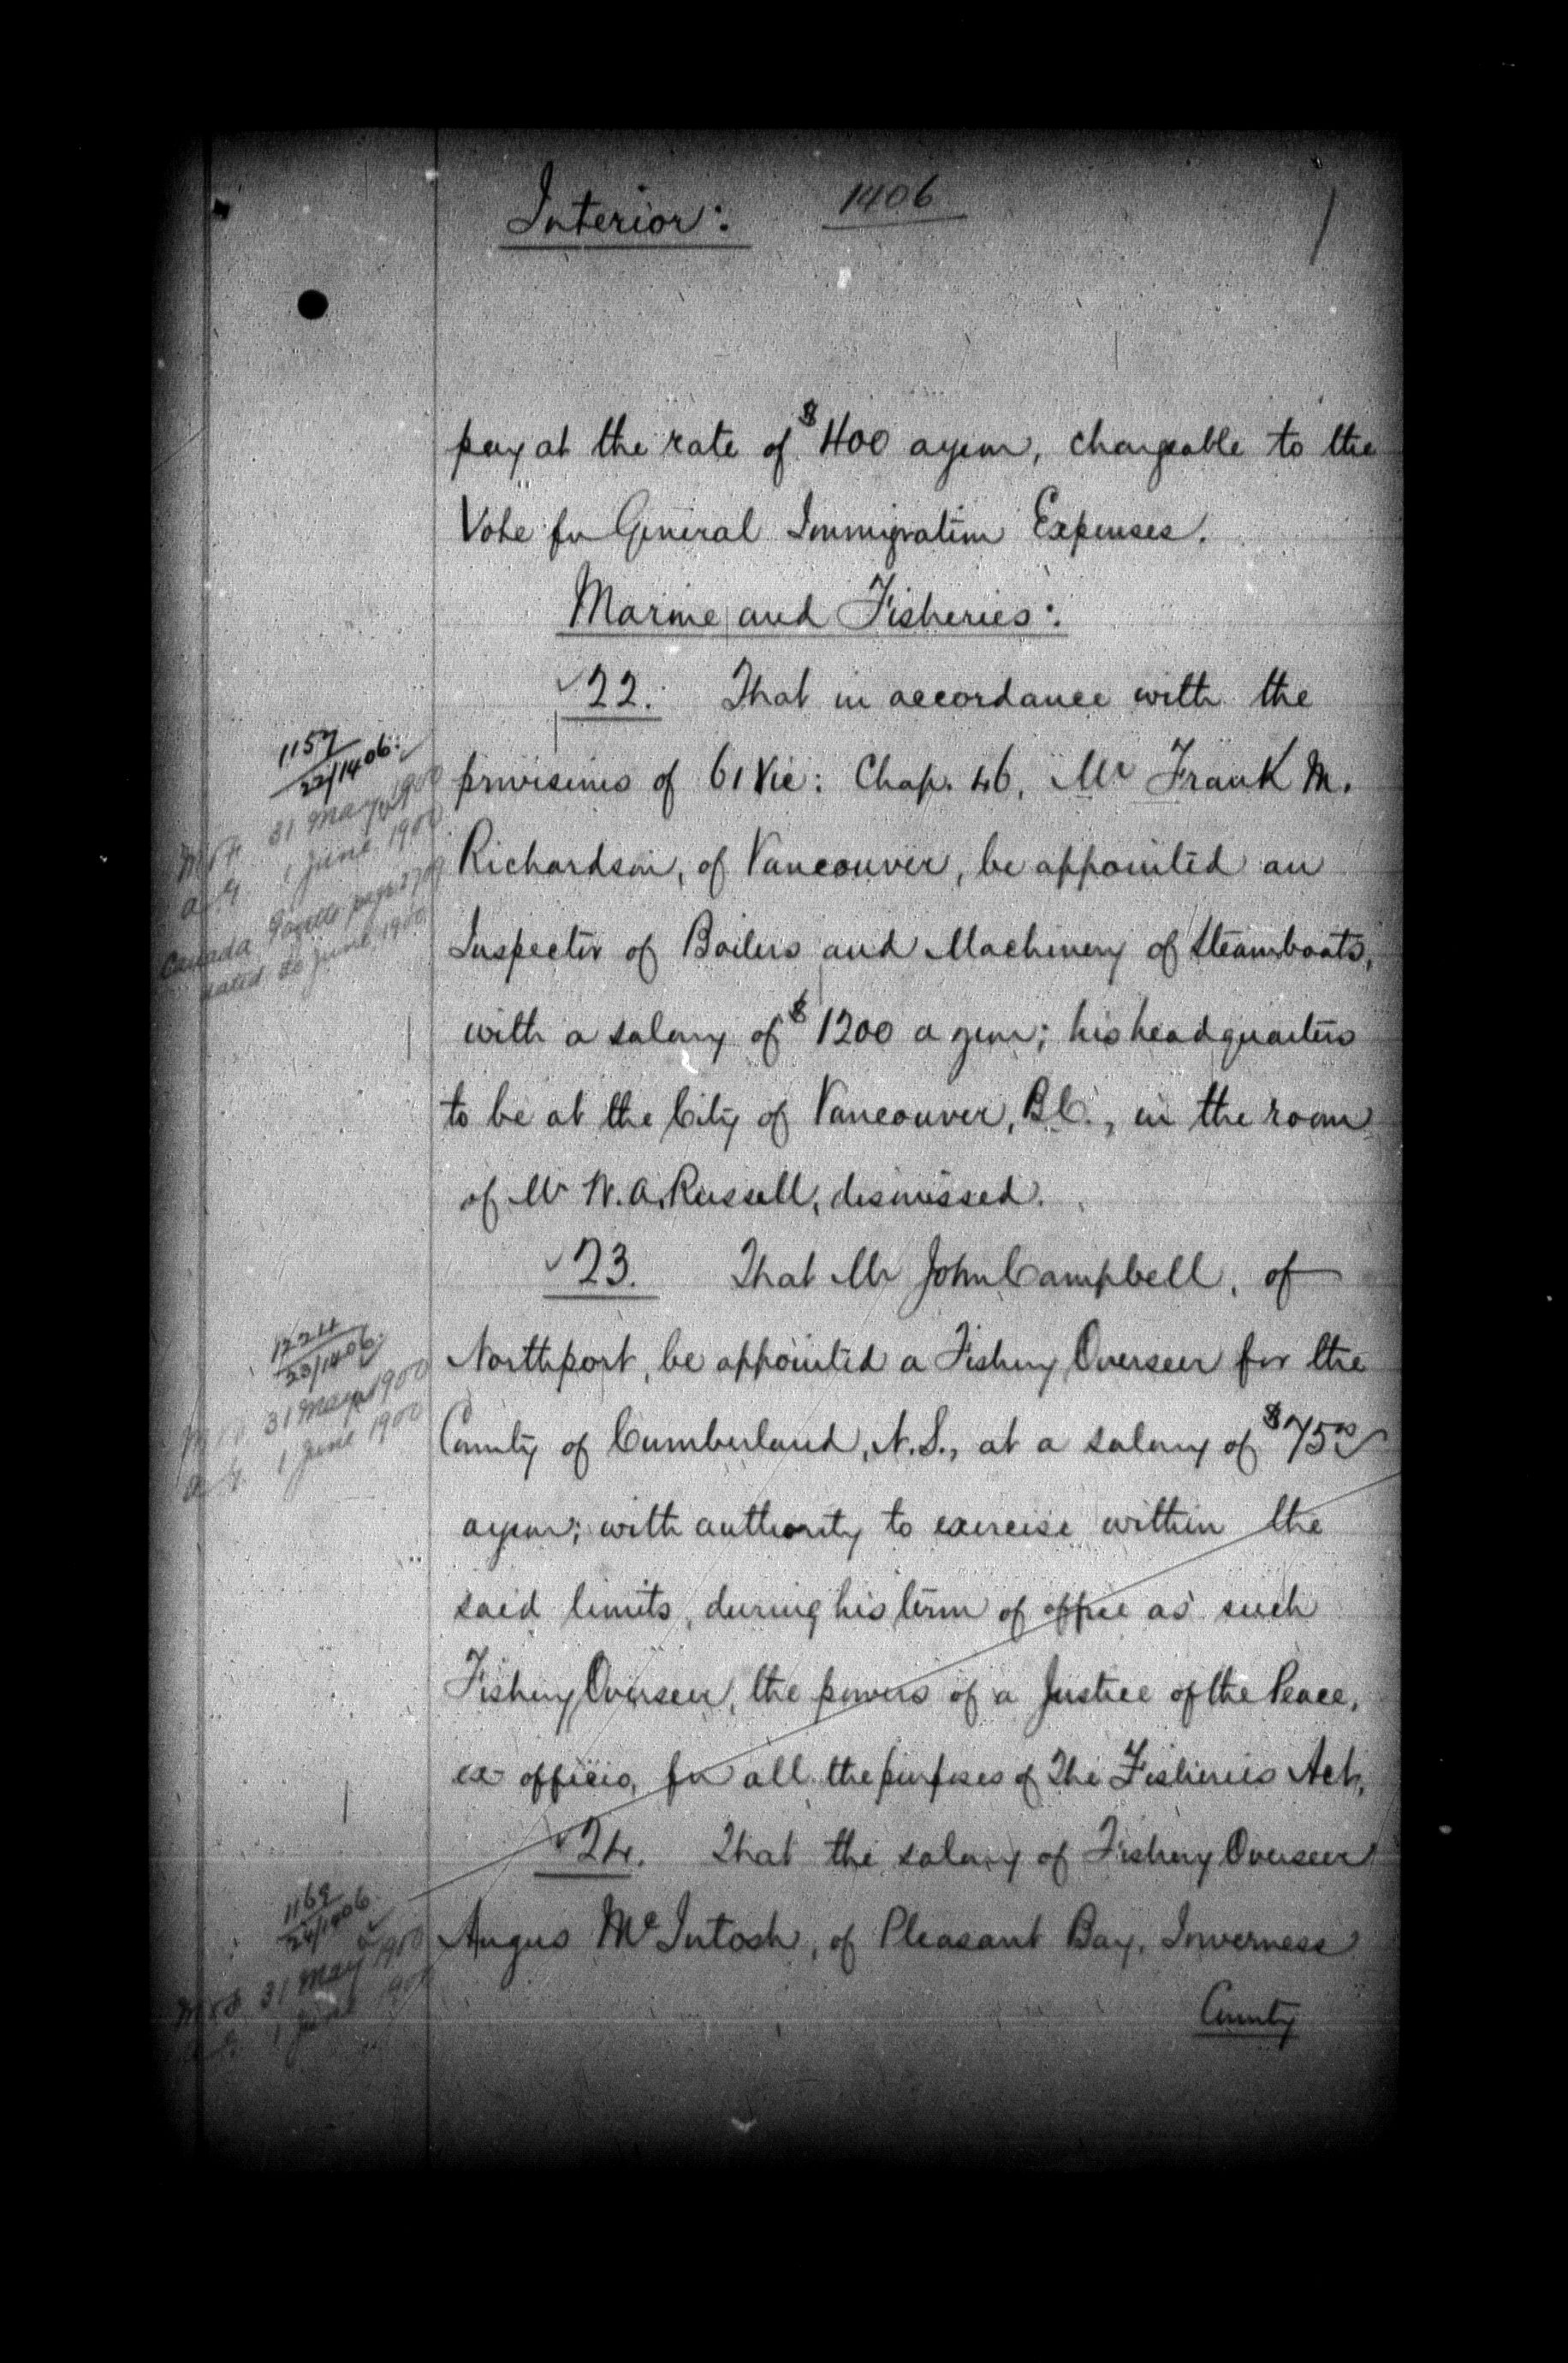 Interior: 1406
pay at the rate of $400 a year, chargeable to the
Vote for General Immigration Expenses.
Marine and Fisheries:
22. That in accordance with the
provisions of 61 Vic: Chap. 46, Mr Frank M.
Richardson, of Vancouver, be appointed an
Inspector of Boilers and Machinery of Steamboats,
with a salary of $1200 a year; his headquarters
to be at the City of Vancouver, B.C., in the room
of Mr W. A. Russell, dismissed.
23. That Mr John Campbell, of
Northport, be appointed a Fishery Overseer for the
County of Cumberland, N.S., at a salary of $75.00
a year; with authority to exercise within the
said limits, during his term of office as such
Fishery Overseer, the powers of a Justice of the Peace,
ex officio, for all the purposes of The Fisheries Act.
24. That the salary of Fishery Overseer
Angus McIntosh, of Pleasant Bay, Inverness
County
1157
22/1406.
M & F. 31 May 1900
a. G. 1 June 1900
Canada Gazette page
dated June 1900
1224
23/1406.
M & F. 31 May 1900
a. G. 1 June 1900
1169
24/1406.
M & F. 31 May 1900
1 June 1900